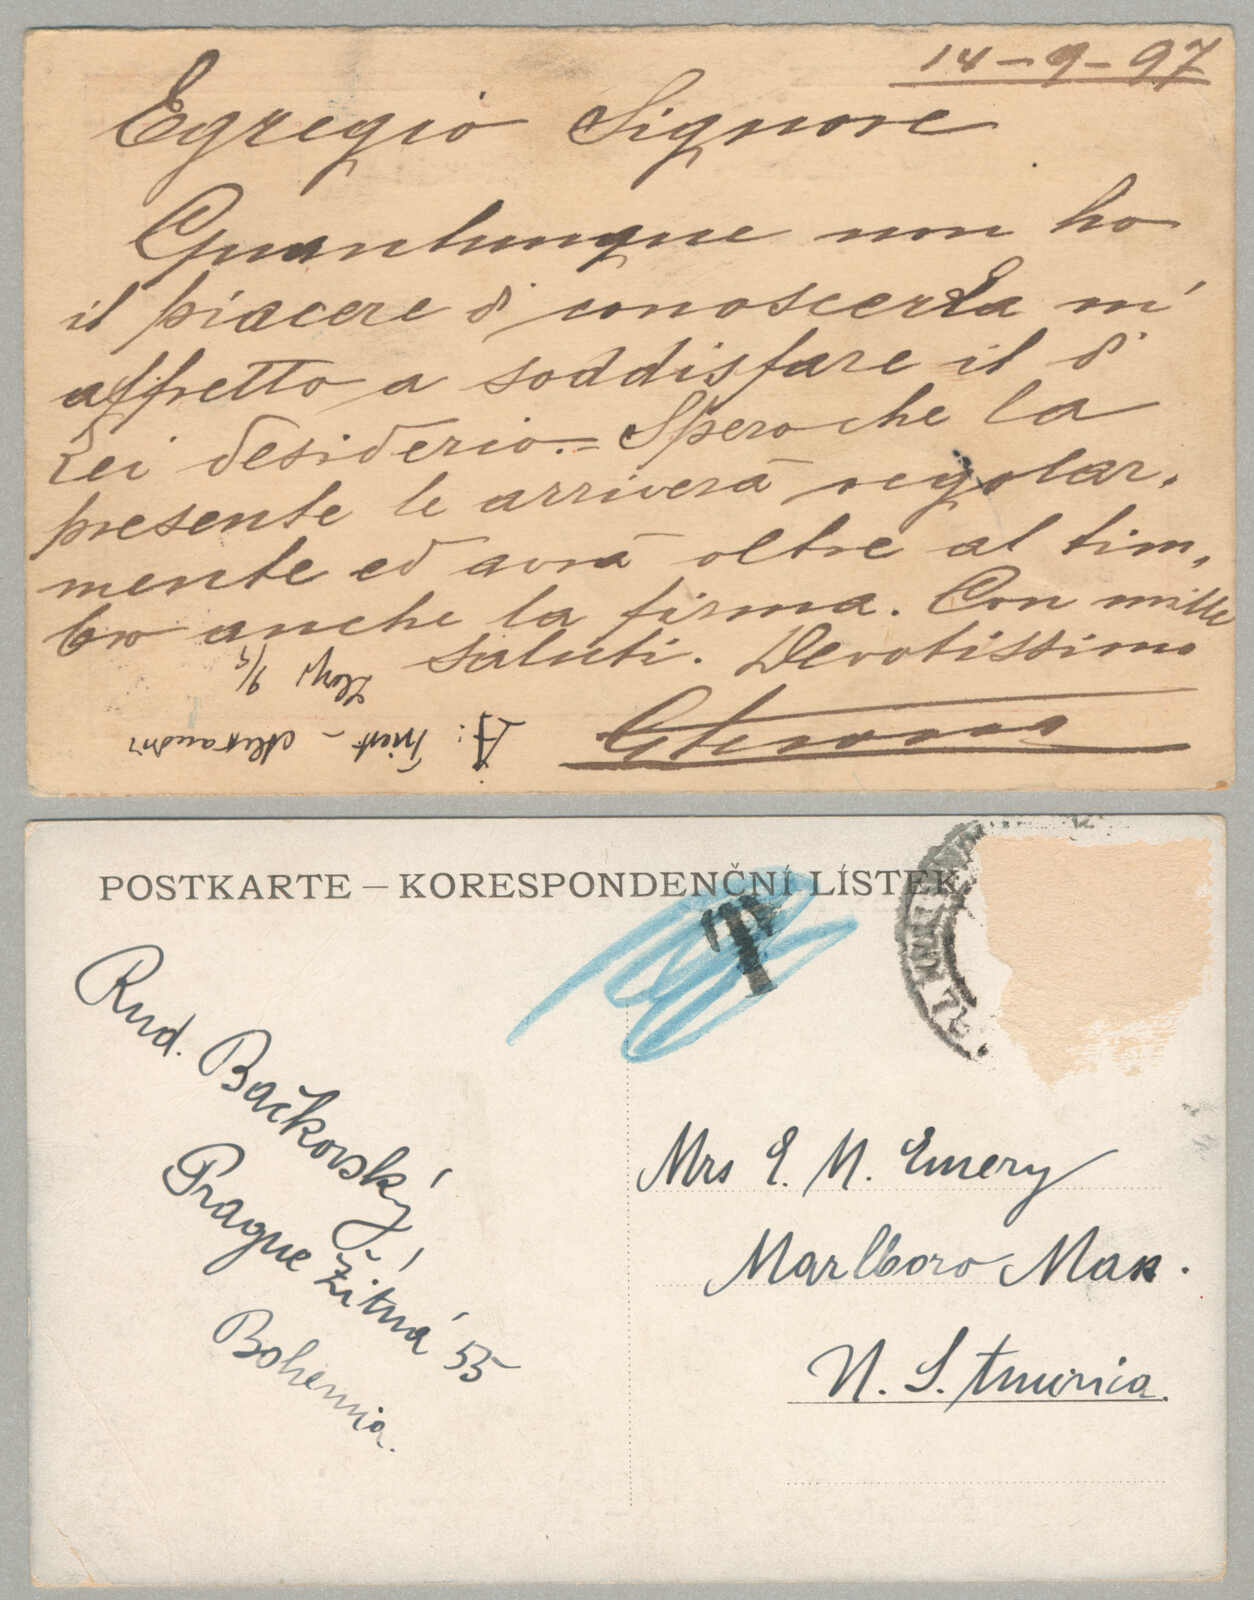 14-9-97
Egregio Signore
Quantunque non ho
il piacere di conoscerLa mi
affretto a soddisfare il di
Lei desiderio.= Spero che la
presente le arriverà regolar.
mente ed avrà oltre al tim,
bro anche la firma. Con mille
saluti. Devotissimo
A: Triest - Alexandri
Lloyd 9/5
POSTKARTE – KORESPONDENČNÍ LÍSTEK
T
Rud. Bačkovský
Prague Žitná 55
Bohemia.
Mrs E. M. Emery
Marlboro Mass.
N. S. America.